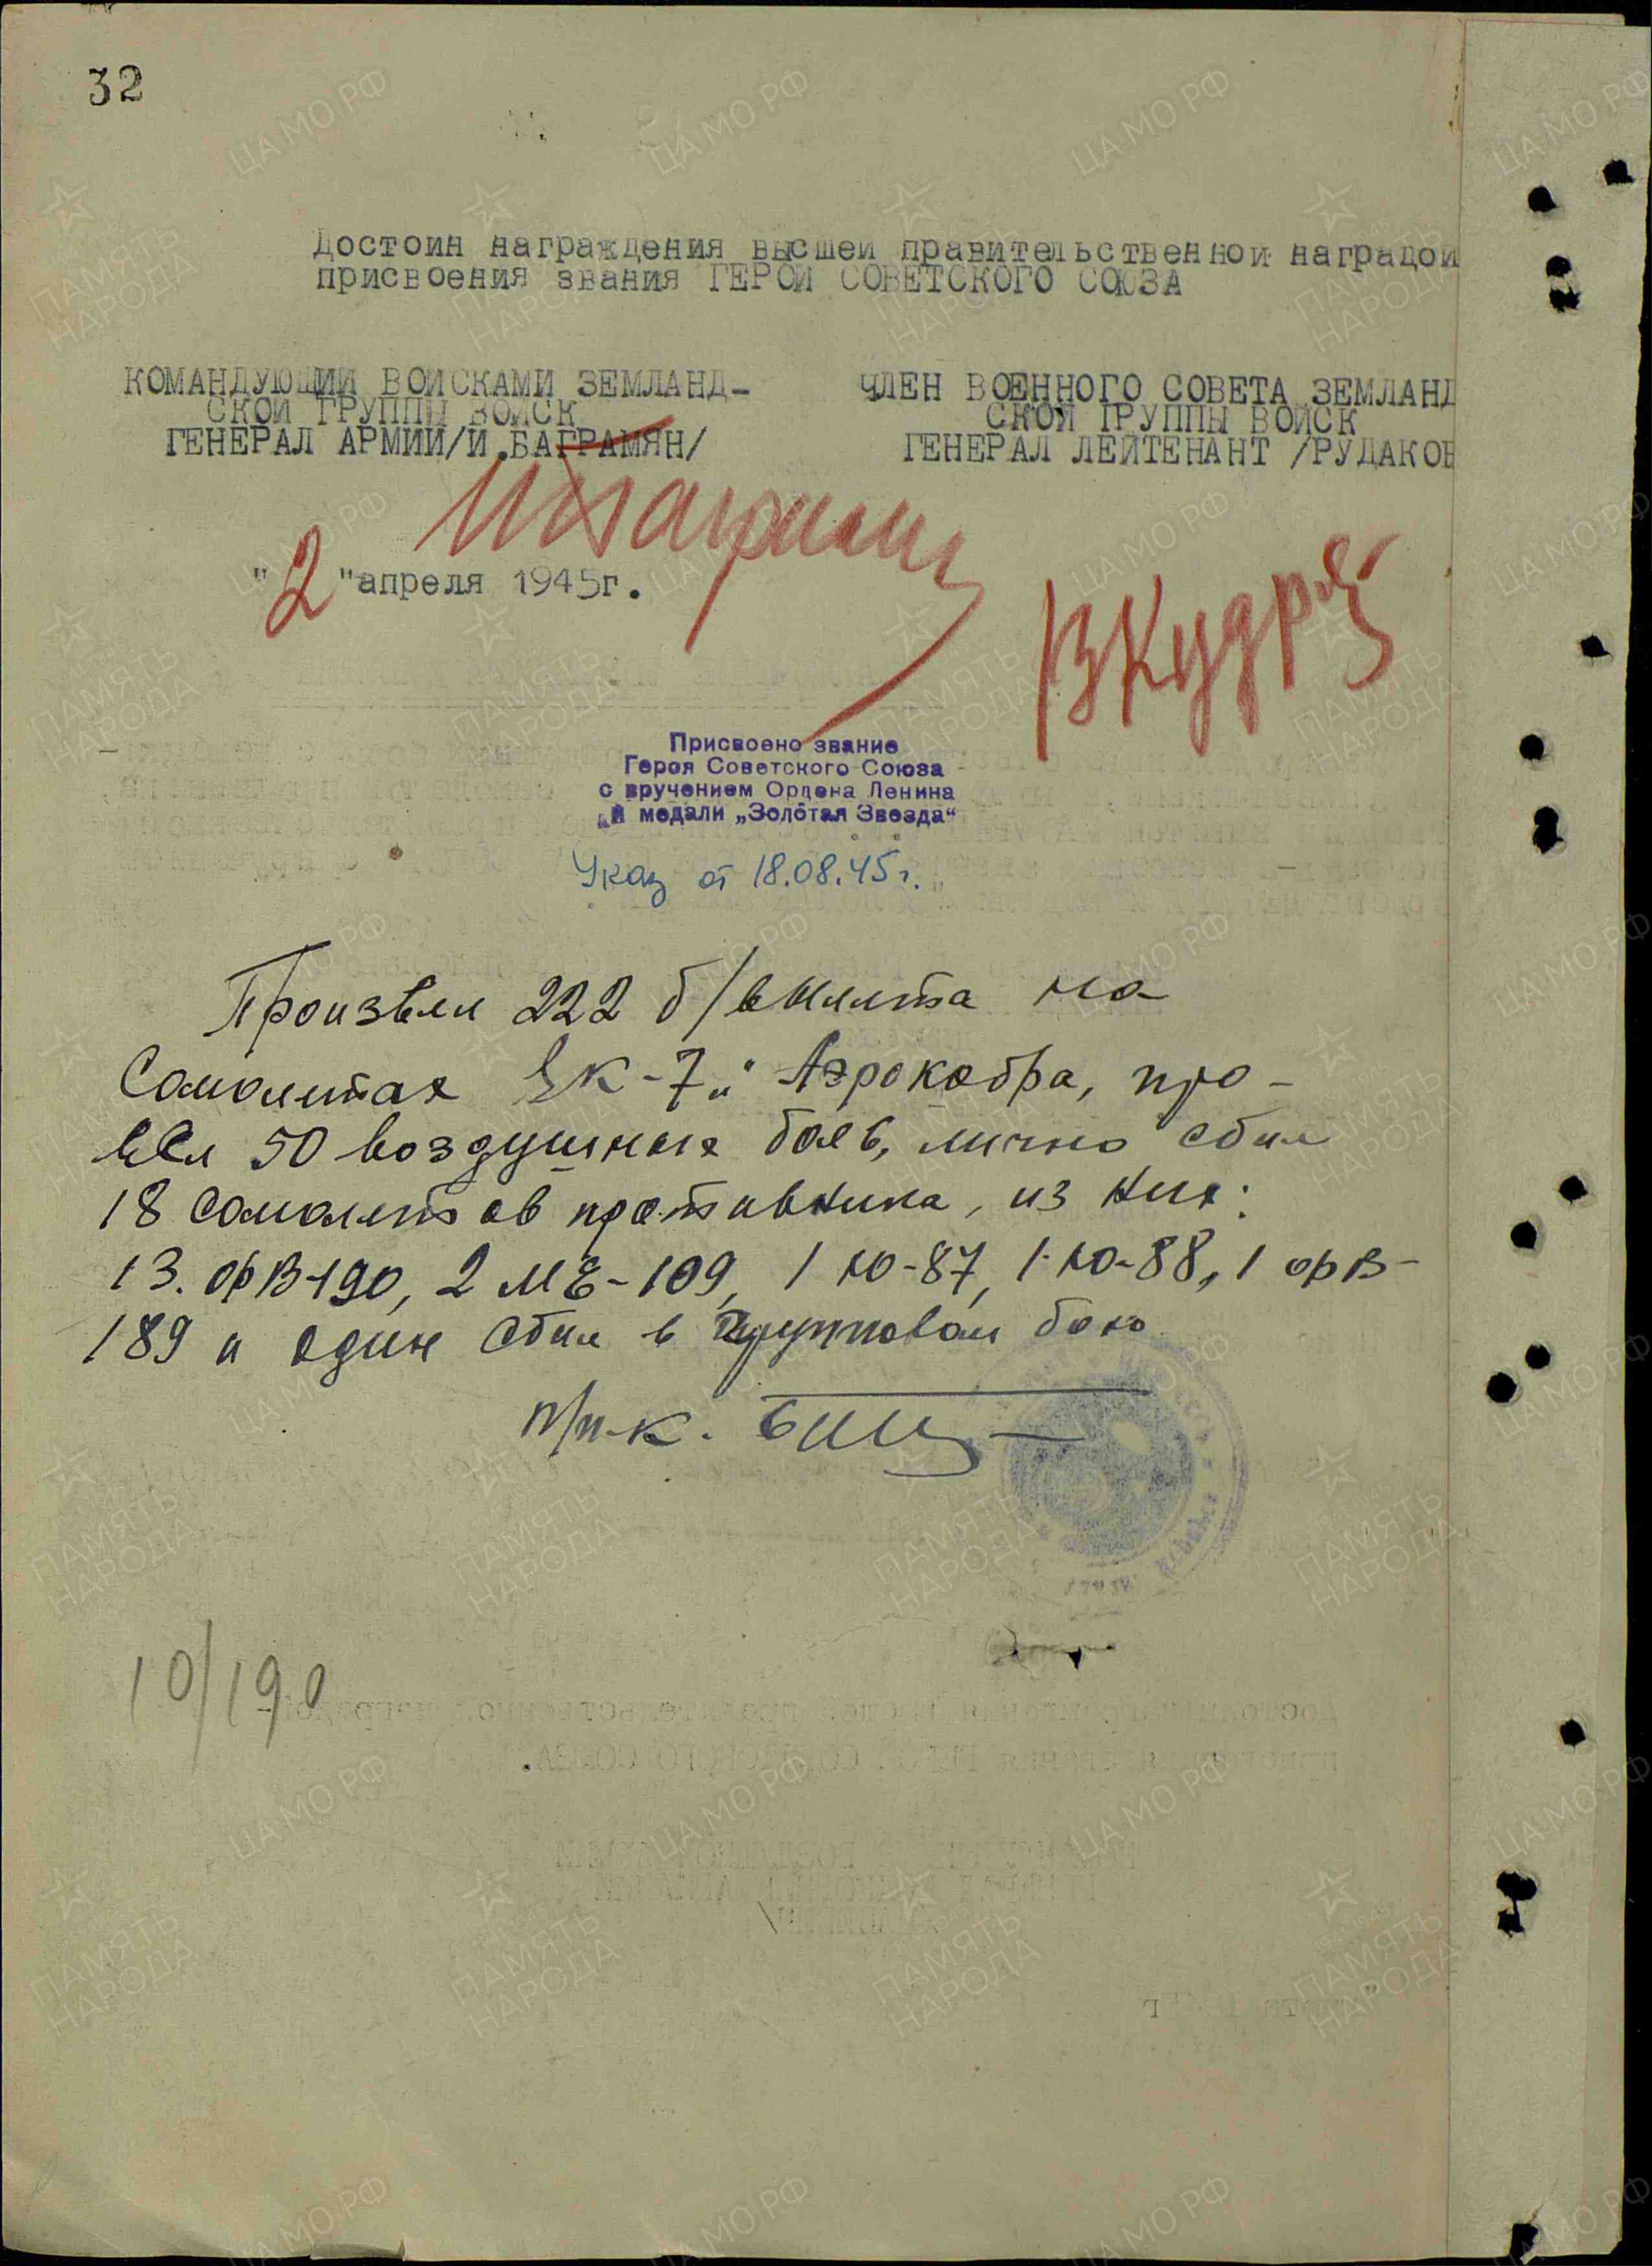 32
Достоин награждения высшей правительственной наградой
присвоения звания ГЕРОЙ СОВЕТСКОГО СОЮЗА
КОМАНДУЮЩИЙ ВОЙСКАМИ ЗЕМЛАНД-
СКОЙ ГРУППЫ ВОЙСК
ГЕНЕРАЛ АРМИИ/И.БАГРАМЯН/
ЧЛЕН ВОЕННОГО СОВЕТА ЗЕМЛАНД
СКОЙ ГРУППЫ ВОЙСК
ГЕНЕРАЛ ЛЕЙТЕНАНТ /РУДАКОВ
ИБаграмян
"2"апреля 1945г.
Присвоено звание
Героя Советского Союза
с вручением Ордена Ленина
и медали „Золотая Звезда“
Указ от 18.08.45г.
Произвел 222 б/вылета на
самолетах ЯК-7 и Аэрокобра, про-
вел 50 воздушных боев, лично сбил
18 самолетов противника, из них:
13. ФВ-190, 2 МЕ-109, 1 Ю-87, 1-Ю-88, 1 ФВ-
189 и один сбил в групповом бою
п/п-к.
10/190
ЦА МО РФ
ПАМЯТЬ
НАРОДА